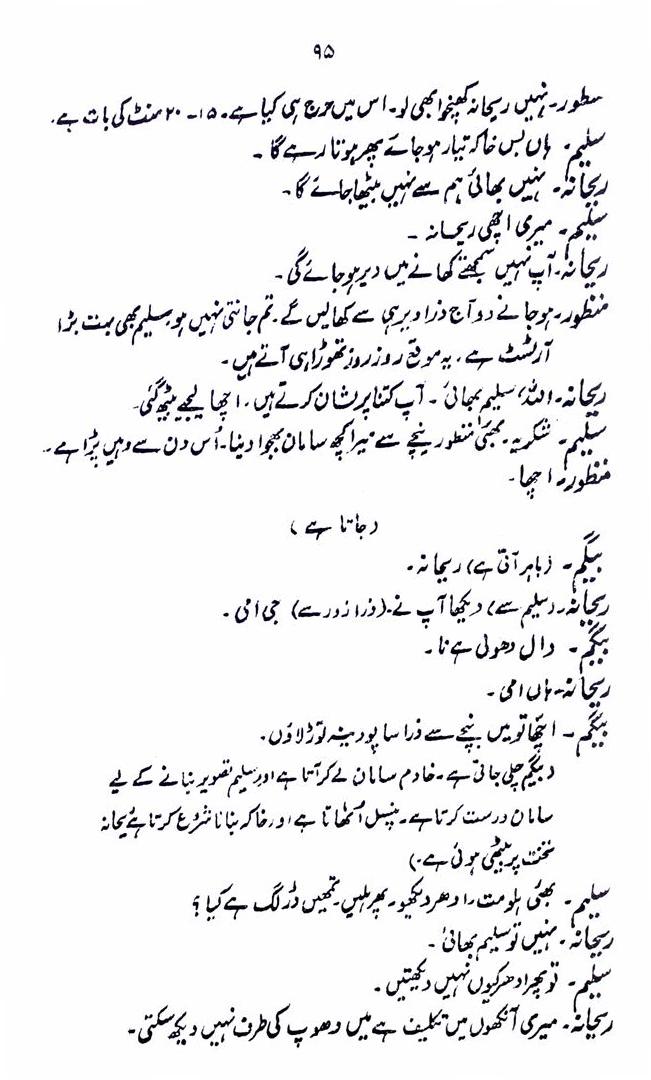 ۹۵
منظور۔ نہیں ریحانہ کھنچوا بھی لو۔ اس میں حرج ہی کیا ہے۔ ۱۵۔ ۲۰ منٹ کی بات ہے۔
سلیم۔ ہاں بس خاکہ تیار ہو جائے پھر ہوتا رہے گا۔
ریحانہ۔ نہیں بھائی ہم سے نہیں بیٹھا جائے گا۔
سلیم۔ میری اچھی ریحانہ۔
ریحانہ۔ آپ نہیں سمجھتے کھانے میں دیر ہو جائے گی۔
منظور۔ ہو جانے دو آج ذرا دیر ہی سے کھالیں گے۔ تم جانتی نہیں ہو سلیم بھی بہت بڑا
آرٹسٹ ہے، یہ موقع روز روز تھوڑا ہی آتے ہیں۔
ریحانہ۔ اللہ، سلیم بھائی۔ آپ کتنا پریشان کرتے ہیں۔ اچھا لیجے بیٹھ گئی۔
سلیم۔ شکریہ۔ بھئی منظور نیچے سے میرا کچھ سامان بھجوا دینا۔ اُس دن سے وہیں پڑا ہے۔
منظور۔ اچھا۔
(جاتا ہے)
بیگم۔ (باہر آتی ہے) ریحانہ۔
ریحانہ۔ (سلیم سے) دیکھا آپ نے۔ (ذرا زور سے) جی امی۔
بیگم۔ دال دھولی ہے نا۔
ریحانہ۔ ہاں امی۔
بیگم۔ اچھا تو میں نیچے سے ذرا سا پودینہ توڑ لاؤں۔
(بیگم چلی جاتی ہے۔ خادم سامان لے کر آتا ہے اور سلیم تصویر بنانے کے لیے
سامان درست کرتا ہے۔ پنسل اُٹھاتا ہے اور خاکہ بنانا شروع کرتا ہے ریحانہ
تخت پر بیٹھی ہوئی ہے۔)
سلیم۔ بھئی ہلو مت۔ ادھر دیکھو۔ پھر ہلیں۔ تمھیں ڈر لگ ہے کیا؟
ریحانہ۔ نہیں تو سلیم بھائی۔
سلیم۔ تو پھر ادھر کیوں نہیں دیکھتیں۔
ریحانہ۔ میری آنکھوں میں تکلیف ہے میں دھوپ کی طرف نہیں دیکھ سکتی۔